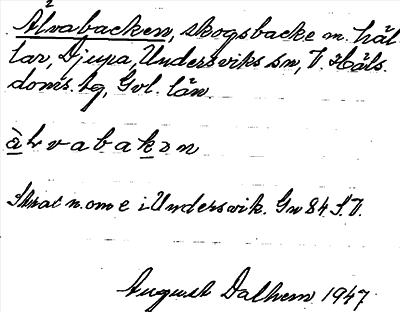 Älvabacken, skogsbacke m. häl-
lar, Djupa, Undersviks sn, V. Häls.
doms. tg, Gvl. län.
älvabakan
i Undersvik. Gw 84. S.V.
August Dalhem 1947